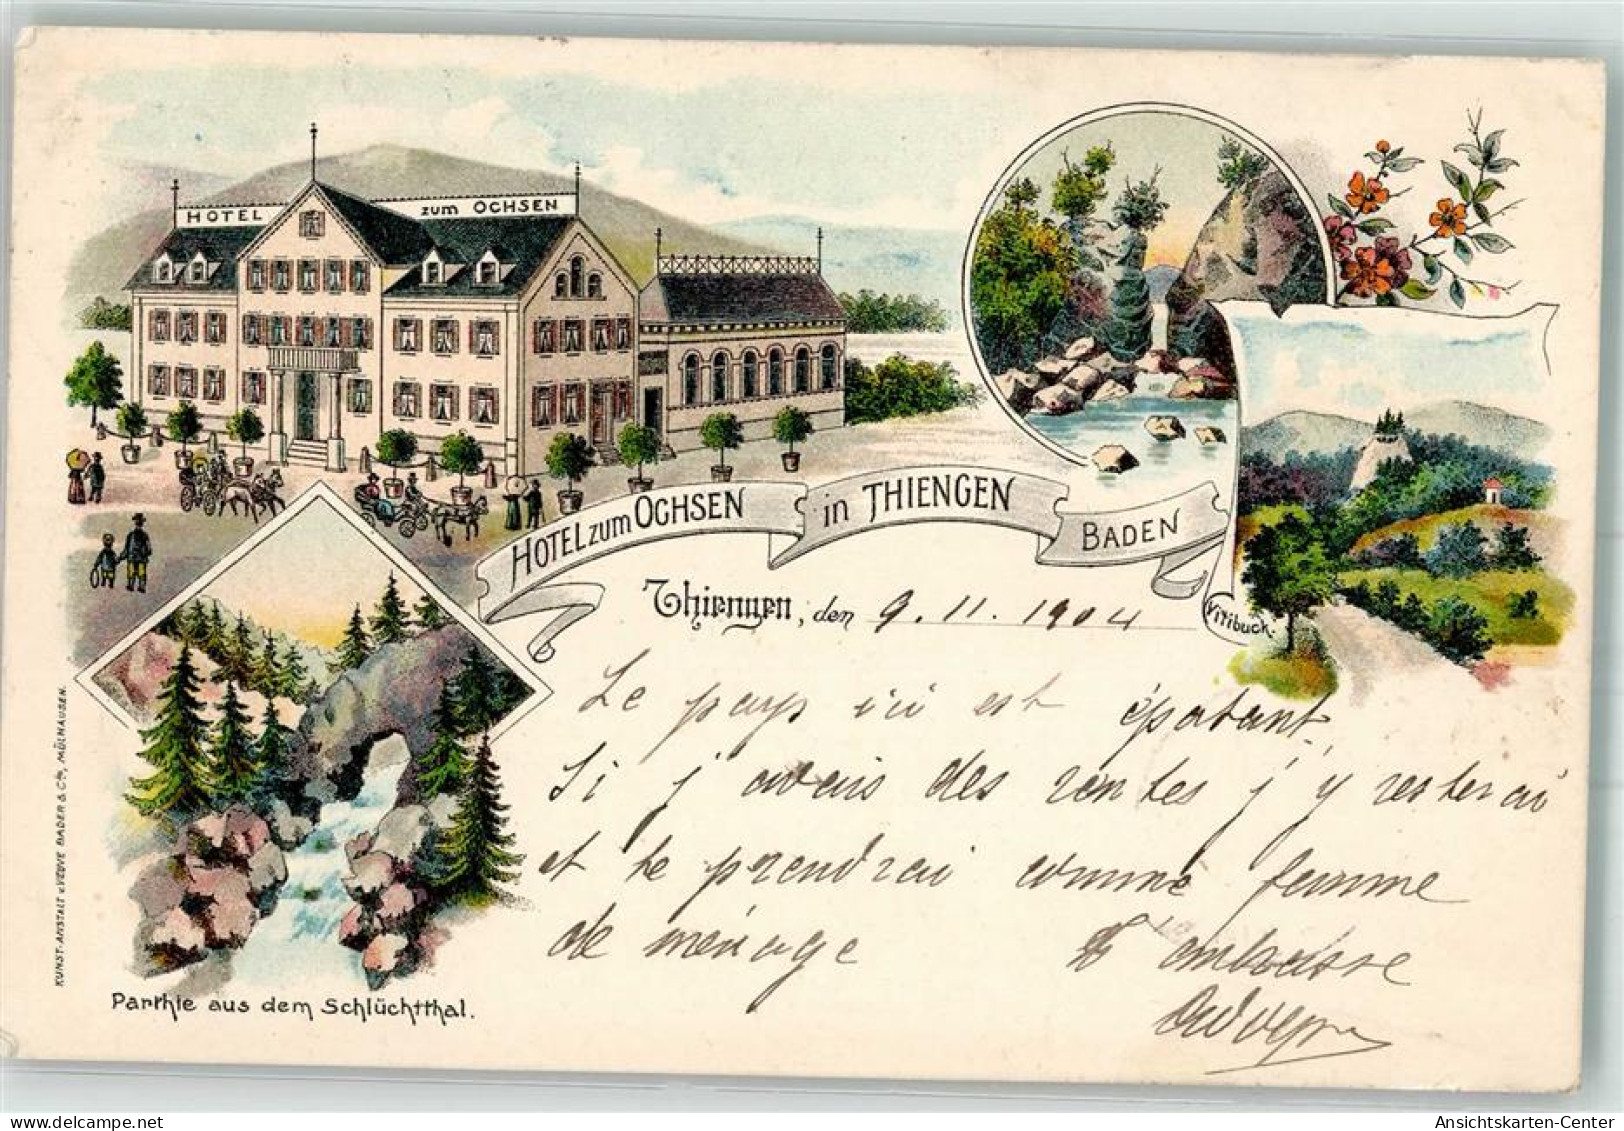 HOTEL zum OCHSEN
HOTEL zum OCHSEN in THIENGEN BADEN
Thiengen, den 9. 11. 1904
Vitibuck.
Le pays ici est épatant,
Si j'avais des rentes j'y resterai
et te prendrai comme femme
de ménage
t'embrasse
Parthie aus dem Schlüchtthal.
KUNST-ANSTALT v. VEUVE BADER & Cie, MÜLHAUSEN.
Ansichtskarten-Center